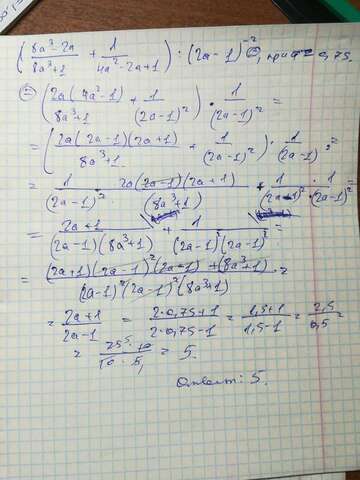 ( (8a³-2a)/(8a³+1) + 1/(4a²-2a+1) ) : (2a-1)⁻² =, при = 0,75.
= ( 2a(4a²-1)/(8a³+1) + 1/(2a-1)² ) · 1/(2a-1)² =
= ( 2a(2a-1)(2a+1)/(8a³+1) + 1/(2a-1)² ) · 1/(2a-1)² =
= 1/(2a-1)² · 2a(2a-1)(2a+1)/(8a³+1) + 1/(2a-1)² · 1/(2a-1)² =
= (2a+1)/((2a-1)(8a³+1)) + 1/((2a-1)²(2a-1)²) =
= ((2a+1)(2a-1)²(2a-1)+(8a³+1))/((2a-1)²(2a-1)²(8a³+1)) =
= (2a+1)/(2a-1) = (2·0,75+1)/(2·0,75-1) = (1,5+1)/(1,5-1) = 2,5/0,5 =
= (25·10)/(10·5) = 5.
Ответ: 5.